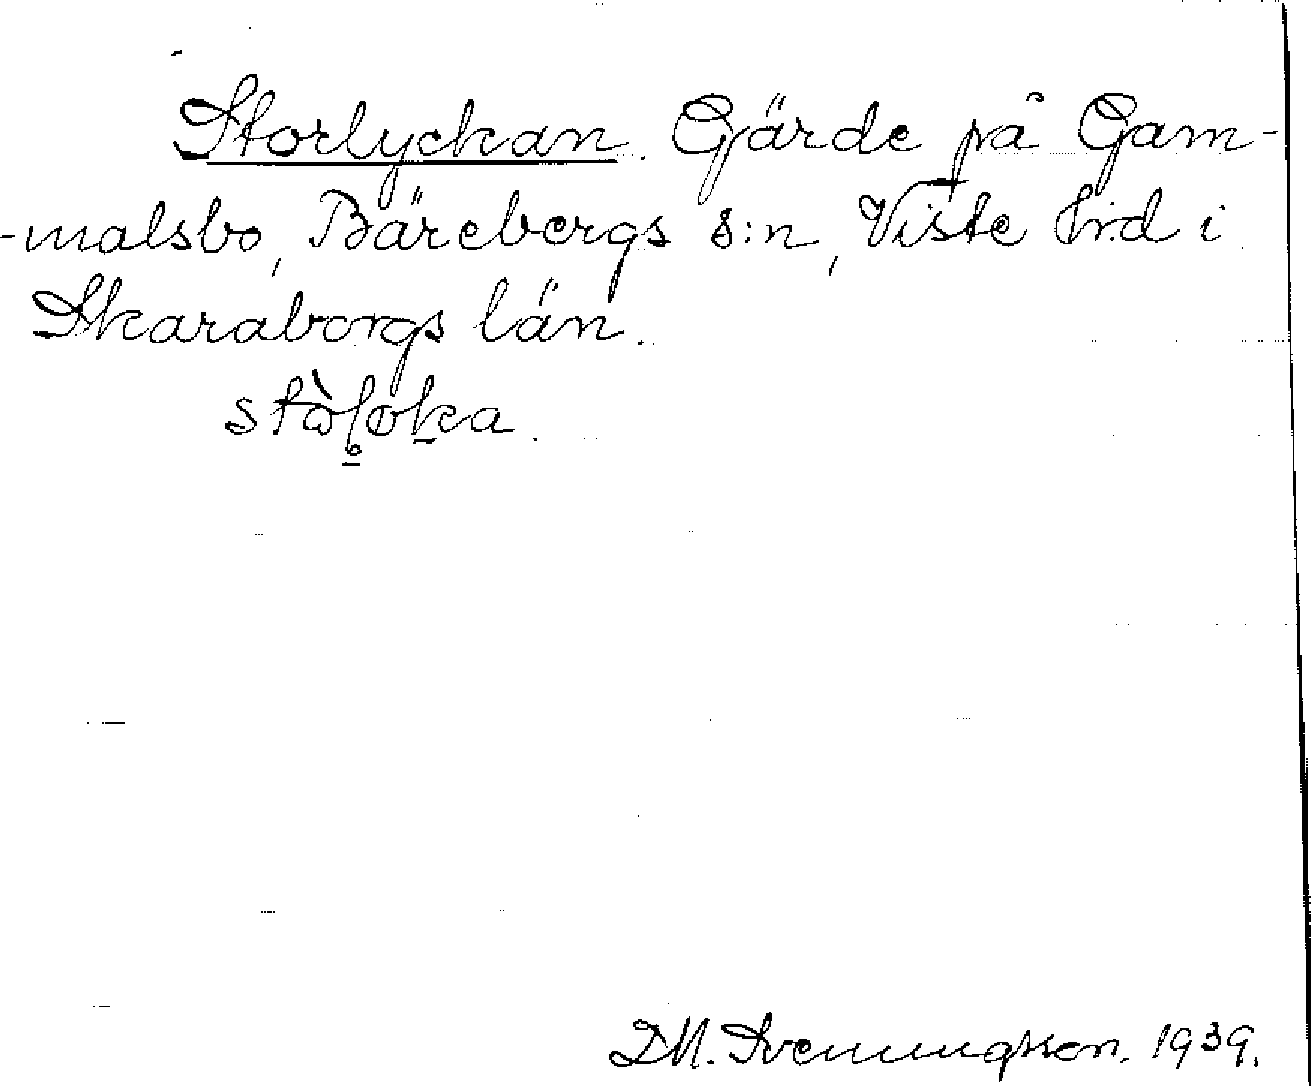 Storlyckan. Gärde på Gam-
-malsbo, Bärebergs s:n, Viste hrd i
Skaraborgs län.
D.M. Svenungsson. 1939.